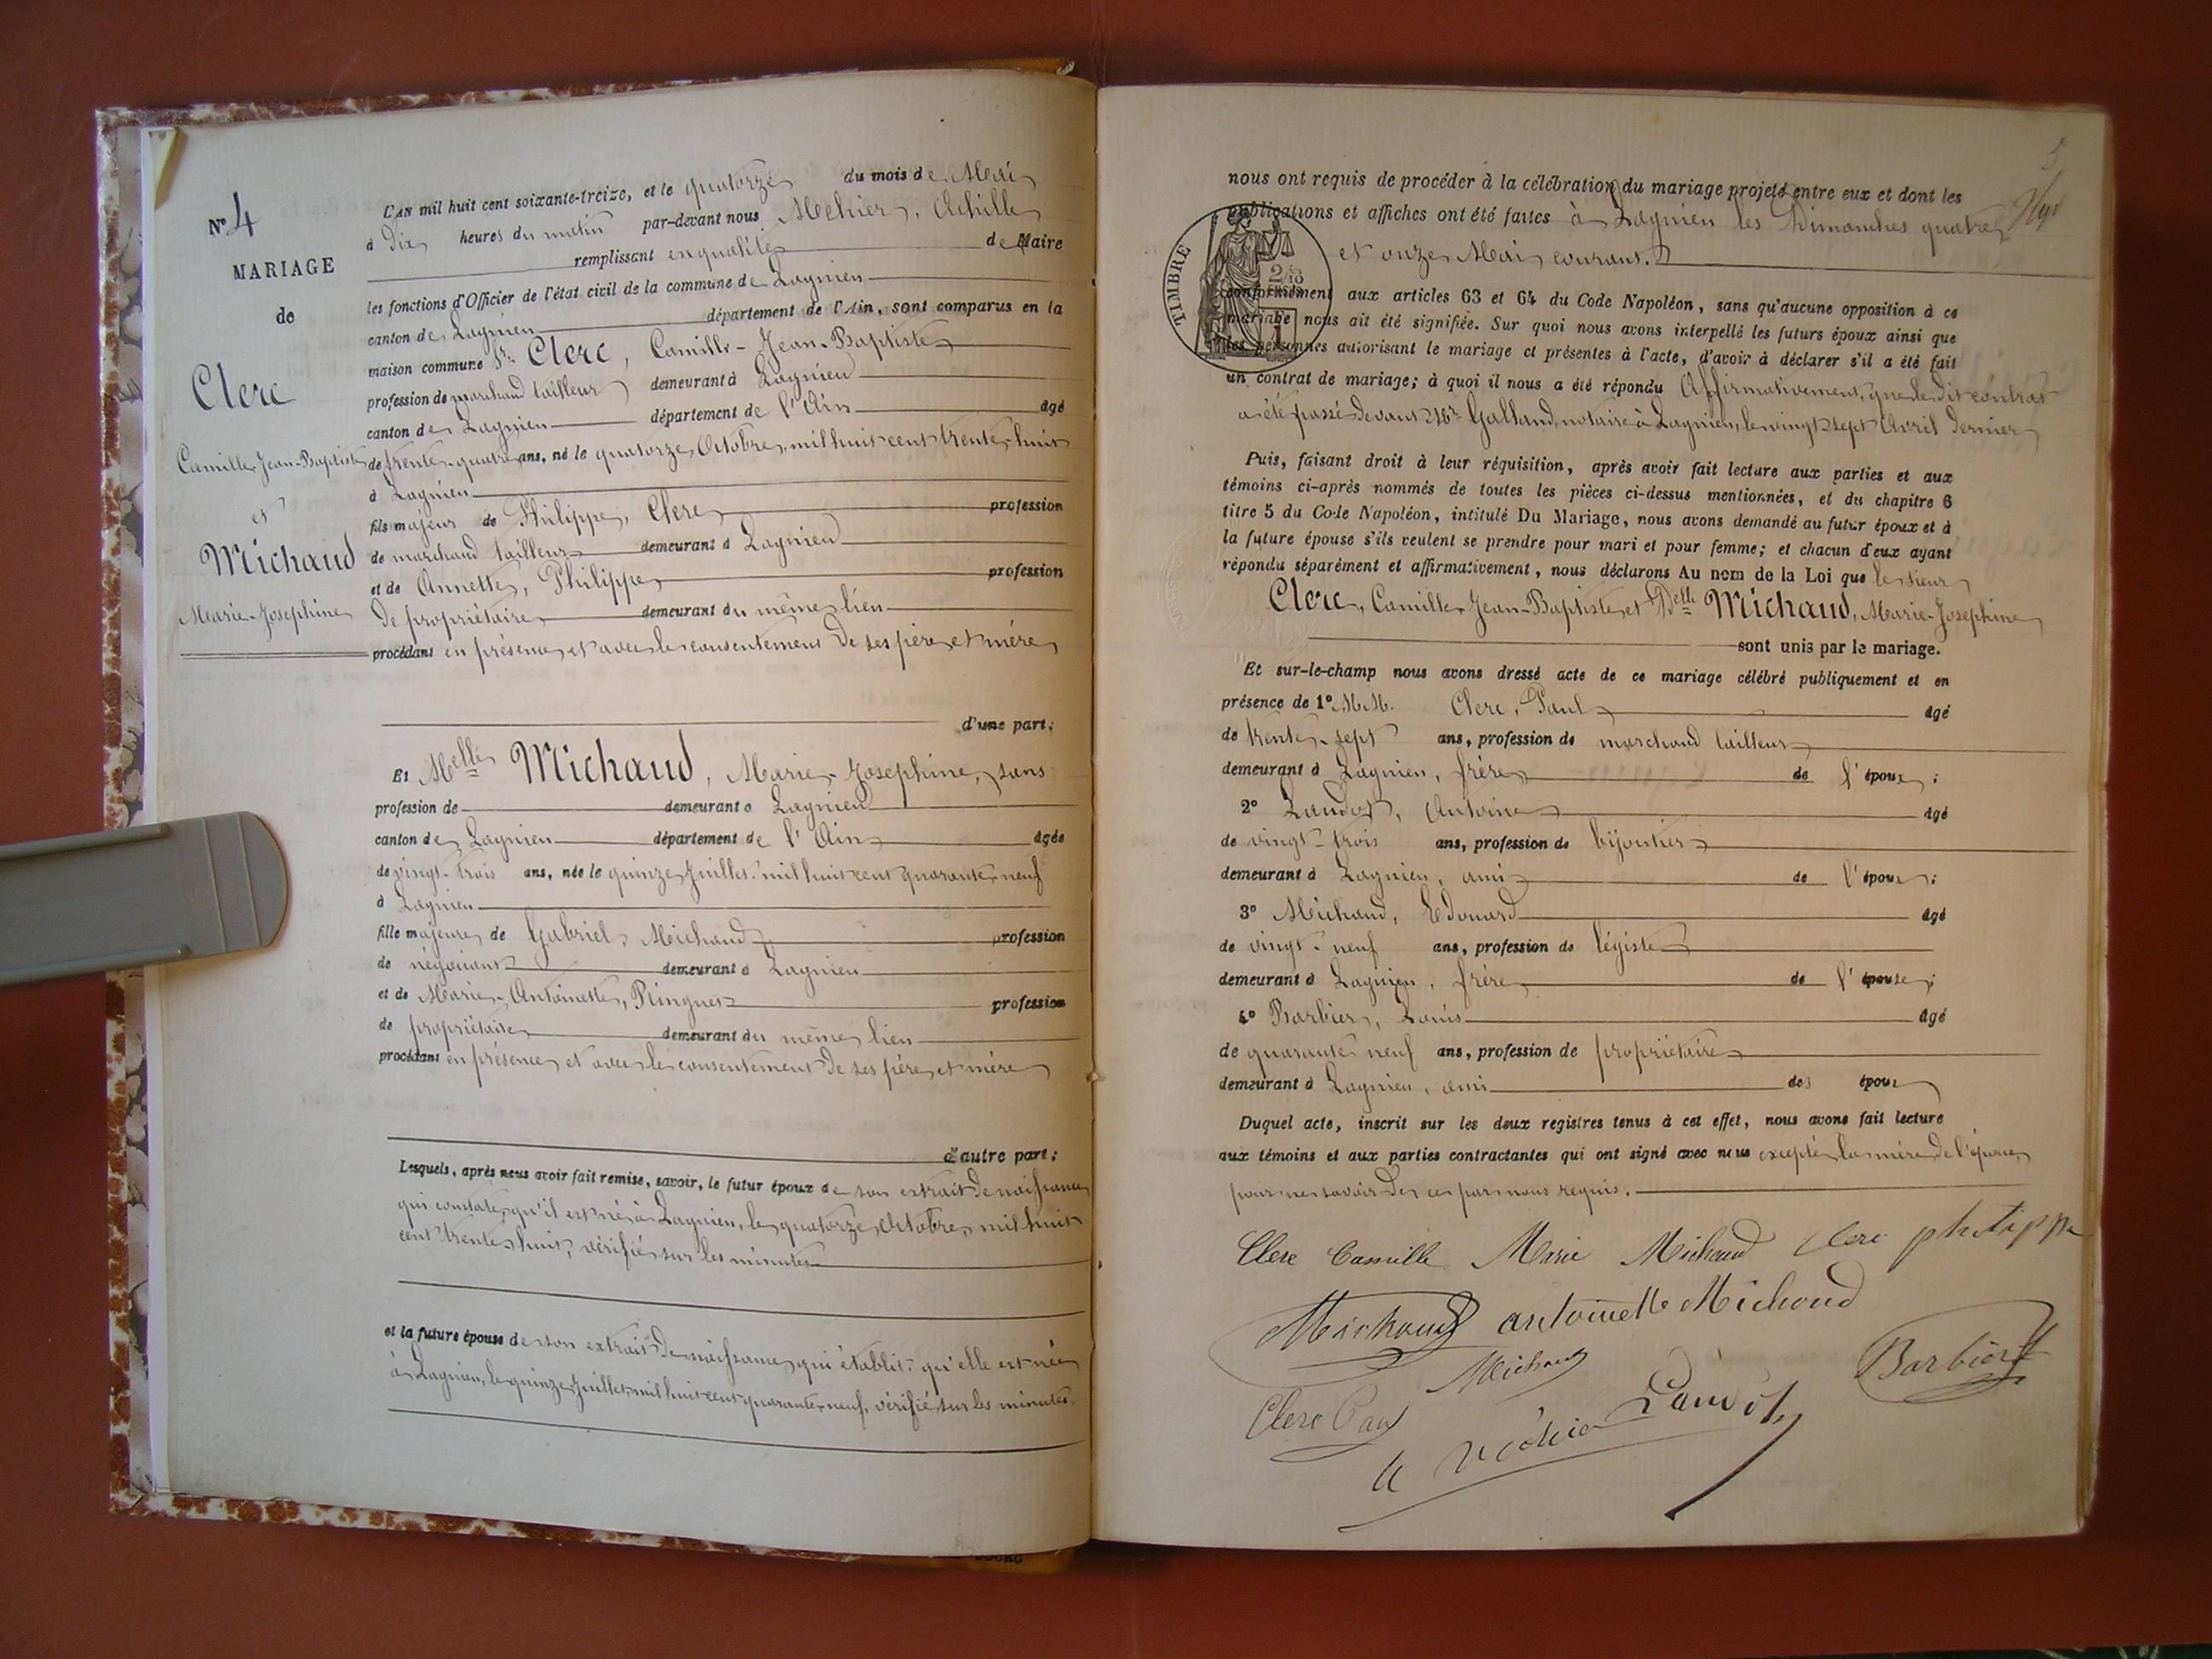 N° 4
MARIAGE
de
Clerc
Camille Jean-Baptiste
et
Michaud
Marie-Josephine
L'AN mil huit cent soixante-treize, et le quatorze du mois de Mai
à dix heures du matin par-devant nous Méhier, Achille
remplissant en qualité de Maire
les fonctions d'Officier de l'état civil de la commune de Lagnieu
canton de Lagnieu département de l'Ain, sont comparus en la
maison commune Sr. Clerc, Camille-Jean-Baptiste
profession de marchand tailleur demeurant à Lagnieu
canton de Lagnieu département de l'Ain âgé
de trente-quatre ans, né le quatorze Octobre mil huit cent trente huit
à Lagnieu
fils majeur de Philippe, Clerc profession
de marchand tailleur demeurant à Lagnieu
et de Annette, Philippe profession
de propriétaire demeurant du même lieu
procédant en présence et avec le consentement de ses père et mère
d'une part;
Et Melle Michaud, Marie-Josephine, sans
profession de demeurant à Lagnieu
canton de Lagnieu département de l'Ain âgée
de vingt-trois ans, née le quinze Juillet mil huit cent quarante neuf
à Lagnieu
fille majeure de Gabriel Michaud profession
de négociant demeurant à Lagnieu
et de Marie-Antoinette, Ringues profession
de propriétaire demeurant du même lieu
procédant en présence et avec le consentement de ses père et mère
d'autre part;
Lesquels, après nous avoir fait remise, savoir, le futur époux de son extrait de naissance
qui constate qu'il est né à Lagnieu, le quatorze Octobre mil huit
cent trente huit, vérifié sur les minutes
et la future épouse de son extrait de naissance qui établit qu'elle est née
à Lagnieu, le quinze Juillet mil huit cent quarante neuf, vérifié sur les minutes.
5
nous ont requis de procéder à la célébration du mariage projeté entre eux et dont les
publications et affiches ont été faites à Lagnieu les Dimanches quatre
et onze Mai courant.
TIMBRE
conformément aux articles 63 et 64 du Code Napoléon, sans qu'aucune opposition à ce
mariage nous ait été signifiée. Sur quoi nous avons interpellé les futurs époux ainsi que
les personnes autorisant le mariage et présentes à l'acte, d'avoir à déclarer s'il a été fait
un contrat de mariage; à quoi il nous a été répondu Affirmativement, que ledit contrat
a été passé devant Me Galland, notaire à Lagnieu, le vingt sept Avril dernier
Puis, faisant droit à leur réquisition, après avoir fait lecture aux parties et aux
témoins ci-après nommés de toutes les pièces ci-dessus mentionnées, et du chapitre 6
titre 5 du Code Napoléon, intitulé Du Mariage, nous avons demandé au futur époux et à
la future épouse s'ils veulent se prendre pour mari et pour femme; et chacun d'eux ayant
répondu séparément et affirmativement, nous déclarons Au nom de la Loi que le sieur
Clerc, Camille Jean-Baptiste et Delle Michaud, Marie-Josephine
sont unis par le mariage.
Et sur-le-champ nous avons dressé acte de ce mariage célébré publiquement et en
présence de 1° MM. Clerc, Paul âgé
de trente-sept ans, profession de marchand tailleur
demeurant à Lagnieu, frère de l'époux;
2° Landot, Antoine âgé
de vingt-trois ans, profession de bijoutier
demeurant à Lagnieu, ami de l'époux;
3° Michaud, Edouard âgé
de vingt-neuf ans, profession de légiste
demeurant à Lagnieu, frère de l'épouse;
4° Barbier, Louis âgé
de quarante neuf ans, profession de propriétaire
demeurant à Lagnieu, ami des époux
Duquel acte, inscrit sur les deux registres tenus à cet effet, nous avons fait lecture
aux témoins et aux parties contractantes qui ont signé avec nous excepté la mère de l'époux
pour ne savoir de ce par nous requis.
Clerc Camille Marie Michaud Clerc philippe
Michaud antoinette Michaud
Michaud Barbier
Clerc Paul Landot
A Méhier